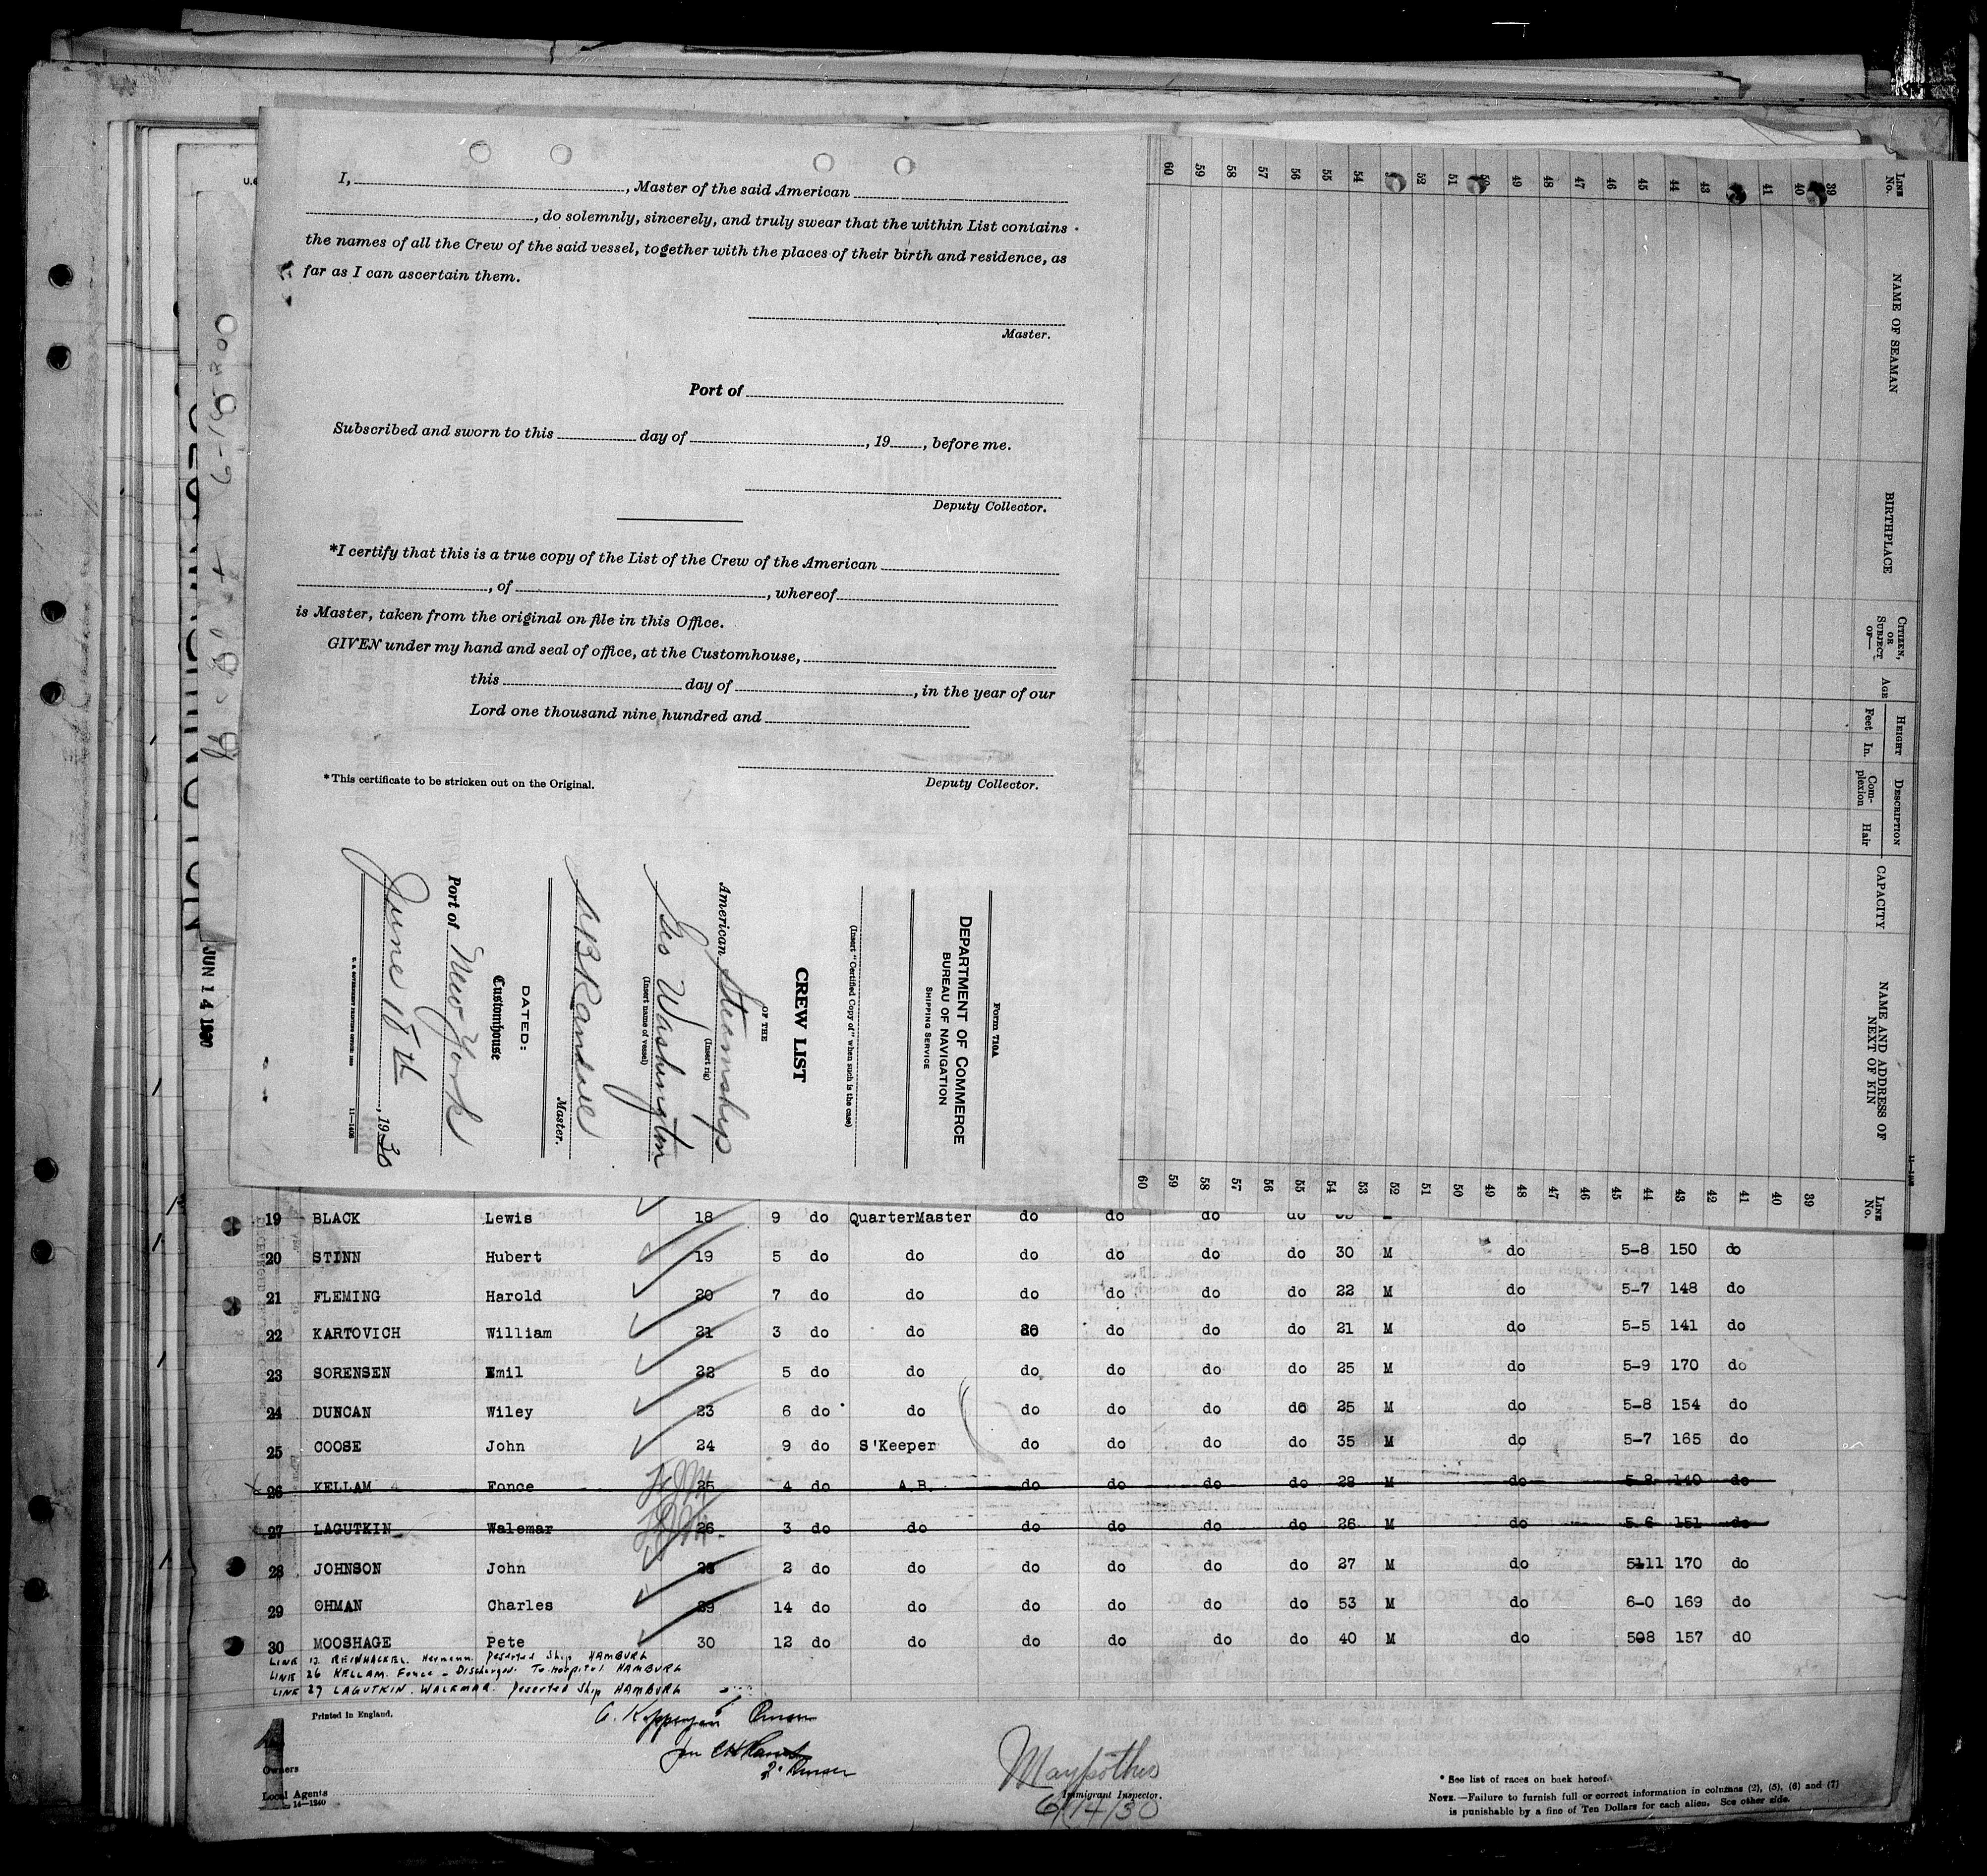 I, , Master of the said American
, do solemnly, sincerely, and truly swear that the within List contains
the names of all the Crew of the said vessel, together with the places of their birth and residence, as
far as I can ascertain them.
Master.
Port of
Subscribed and sworn to this day of , 19 , before me.
Deputy Collector.
*I certify that this is a true copy of the List of the Crew of the American
, of , whereof
is Master, taken from the original on file in this Office.
GIVEN under my hand and seal of office, at the Customhouse,
this day of , in the year of our
Lord one thousand nine hundred and
Deputy Collector.
*This certificate to be stricken out on the Original.
Form 710A
DEPARTMENT OF COMMERCE
BUREAU OF NAVIGATION
SHIPPING SERVICE
(Insert "Certified Copy of" when such is the case)
CREW LIST
OF THE
American Steamship
(Insert rig)
Geo Washington
(Insert name of vessel)
Master.
DATED:
Customhouse
Port of New York
June 18th, 1930
11-1408
LINE No.
NAME OF SEAMAN
BIRTHPLACE
CITIZEN, OR SUBJECT OF—
AGE
HEIGHT
Feet In.
DESCRIPTION
Complexion Hair
CAPACITY
NAME AND ADDRESS OF NEXT OF KIN
LINE No.
39 40 41 42 43 44 45 46 47 48 49 50 51 52 53 54 55 56 57 58 59 60
39 40 41 42 43 44 45 46 47 48 49 50 51 52 53 54 55 56 57 58 59 60
JUN 14 1930
19 BLACK Lewis 18 9 do QuarterMaster do do do do
20 STINN Hubert 19 5 do do do do do do 30 M do 5-8 150 do
21 FLEMING Harold 20 7 do do do do do do 22 M do 5-7 148 do
22 KARTOVICH William 21 3 do do do do do do 21 M do 5-5 141 do
23 SORENSEN Emil 22 5 do do do do do do 25 M do 5-9 170 do
24 DUNCAN Wiley 23 6 do do do do do do 25 M do 5-8 154 do
25 COOSE John 24 9 do S'Keeper do do do do 35 M do 5-7 165 do
26 KELLAM Fonce 25 4 do A.B. do do do do 28 M do 5-8 140 do
27 LAGUTKIN Walemar 26 3 do do do do do do 26 M do 5-6 151 do
28 JOHNSON John 28 2 do do do do do do 27 M do 5111 170 do
29 OHMAN Charles 29 14 do do do do do do 53 M do 6-0 169 do
30 MOOSHAGE Pete 30 12 do do do do do do 40 M do 508 157 d0
LINE 12 REINHACKEL. Hermann. Deserted Ship HAMBURG
LINE 26 KELLAM. Fonce - Discharged. To Hospital HAMBURG
LINE 27 LAGUTKIN. WALEMAR. Deserted Ship HAMBURG
Printed in England.
Owners
Local Agents
14-1240
Immigrant Inspector.
6/14/30
* See list of races on back hereof.
NOTE.—Failure to furnish full or correct information in columns (2), (5), (6) and (7)
is punishable by a fine of Ten Dollars for each alien. See other side.